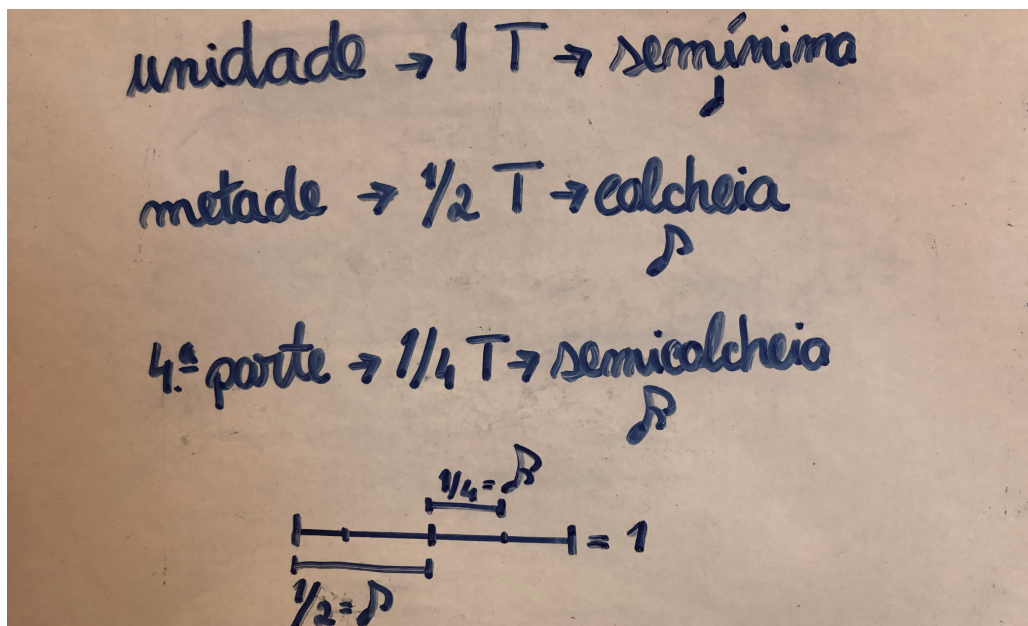 unidade → 1 T → semínima
♩
metade → 1/2 T → colcheia
♪
4.ª parte → 1/4 T → semicolcheia
𝅘𝅥𝅯
1/4 = 𝅘𝅥𝅯
= 1
1/2 = ♪